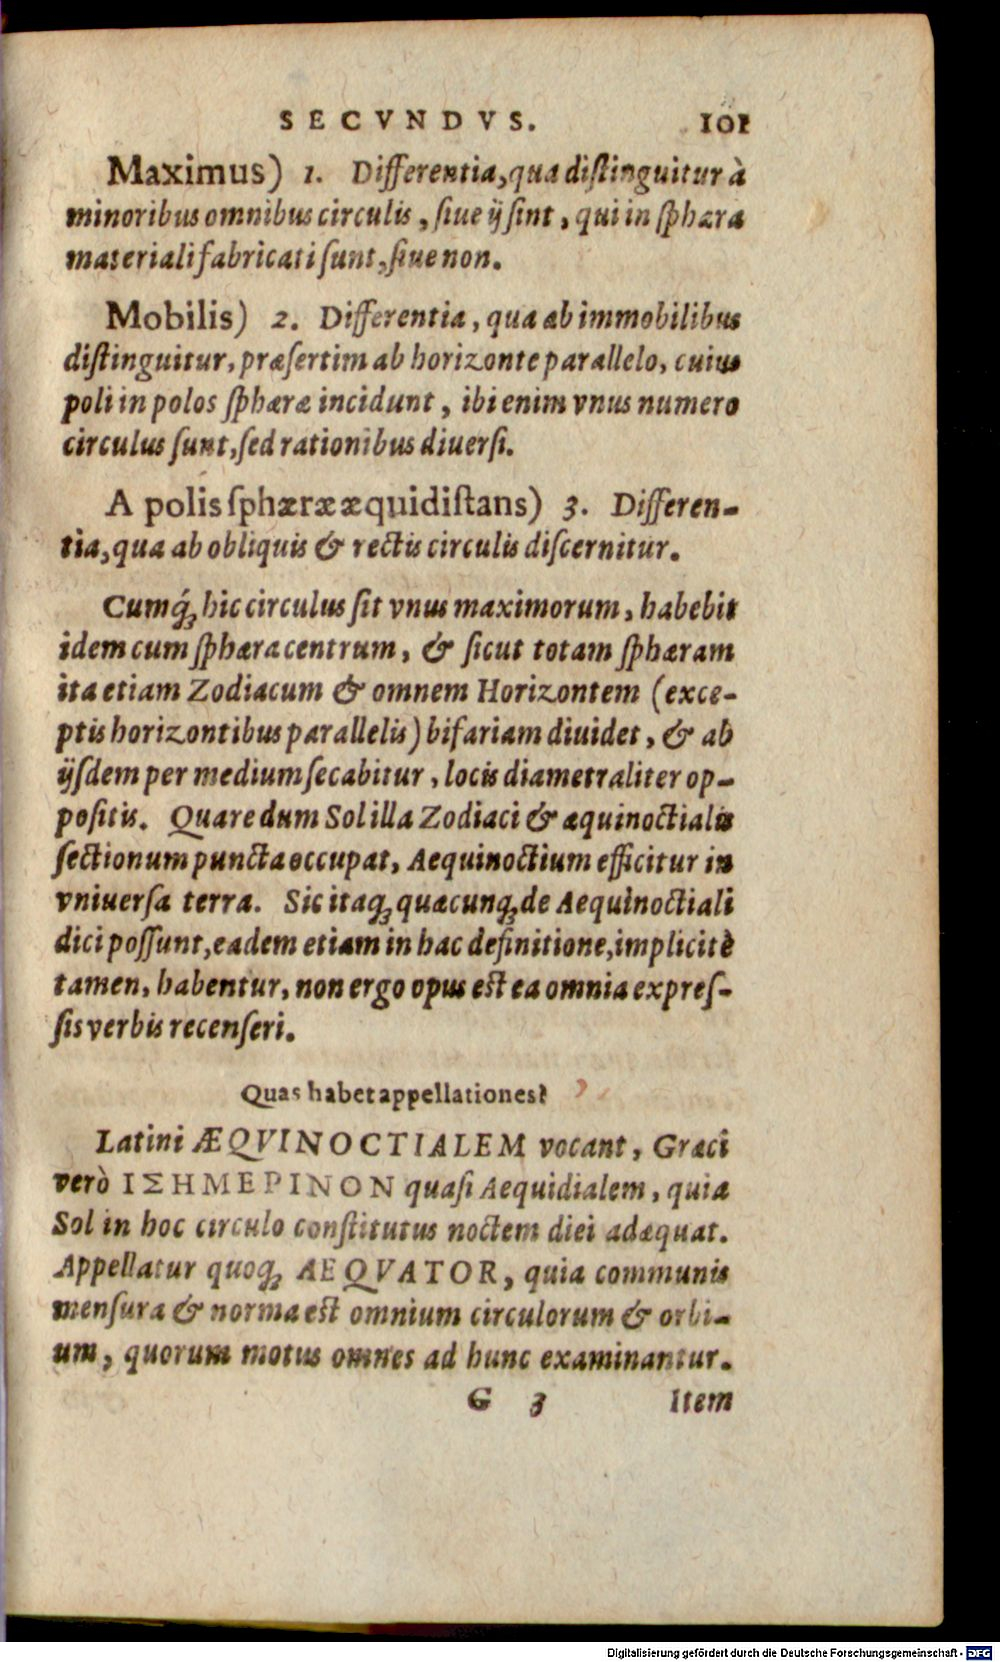 SECVNDVS. 101
Maximus) 1. Differentia, qua distinguitur à
minoribus omnibus circulis, siue ij sint, qui in sphæra
materiali fabricati sunt, siue non.
Mobilis) 2. Differentia, qua ab immobilibus
distinguitur, præsertim ab horizonte parallelo, cuius
poli in polos sphæræ incidunt, ibi enim vnus numero
circulus sunt, sed rationibus diuersi.
A polis sphæræ æquidistans) 3. Differen-
tia, qua ab obliquis & rectis circulis discernitur.
Cumq́ꝫ hic circulus sit vnus maximorum, habebit
idem cum sphæra centrum, & sicut totam sphæram
ita etiam Zodiacum & omnem Horizontem (exce-
ptis horizontibus parallelis) bifariam diuidet, & ab
ijsdem per medium secabitur, locis diametraliter op-
positis. Quare dum Sol illa Zodiaci & æquinoctialis
sectionum puncta occupat, Aequinoctium efficitur in
vniuersa terra. Sic itaqꝫ quæcunqꝫ de Aequinoctiali
dici possunt, eadem etiam in hac definitione, implicitè
tamen, habentur, non ergo opus est ea omnia expres-
sis verbis recenseri.
Quas habet appellationes?
Latini ÆQVINOCTIALEM vocant, Græci
verò ΙΣΗΜΕΡΙΝΟΝ quasi Aequidialem, quia
Sol in hoc circulo constitutus noctem diei adæquat.
Appellatur quoqꝫ AEQVATOR, quia communis
mensura & norma est omnium circulorum & orbi-
um, quorum motus omnes ad hunc examinantur.
G 3 Item
Digitalisierung gefördert durch die Deutsche Forschungsgemeinschaft - DFG